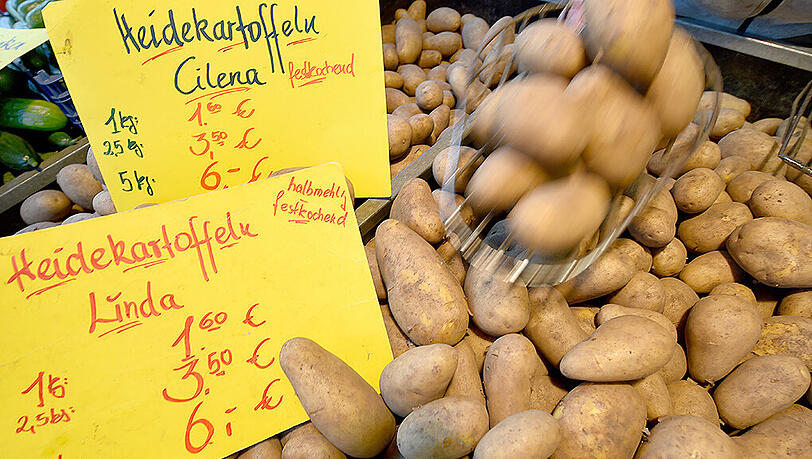 Heidekartoffeln
Cilena festkochend
1 kg: 1.60 €
2,5 kg: 3.50 €
5 kg: 6.- €
halbmehlig
festkochend
Heidekartoffeln
Linda
1 kg: 1.60 €
2,5 kg: 3.50 €
6.- €